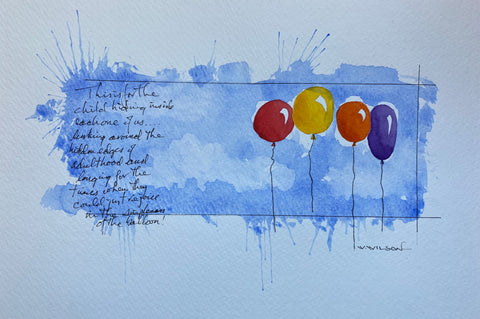 This is for the
child hiding inside
each one of us...
looking around the
hidden edges of
adulthood and
longing for the
times when they
could just rejoice
in the
of the balloon.
W. WILSON